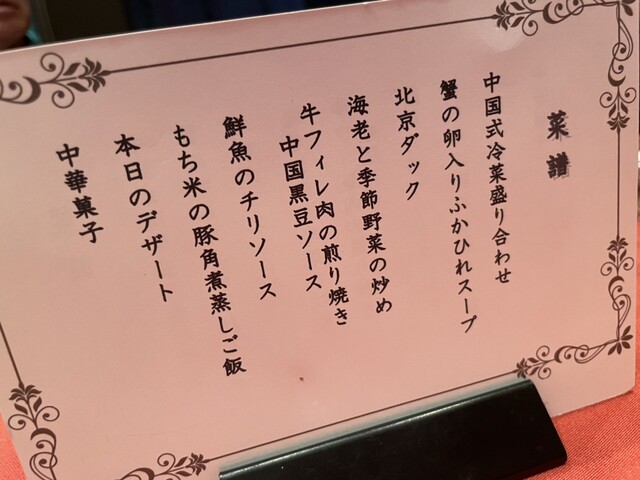 菜譜
中国式冷菜盛り合わせ
蟹の卵入りふかひれスープ
北京ダック
海老と季節野菜の炒め
牛フィレ肉の煎り焼き
中国黒豆ソース
鮮魚のチリソース
もち米の豚角煮蒸しご飯
本日のデザート
中華菓子